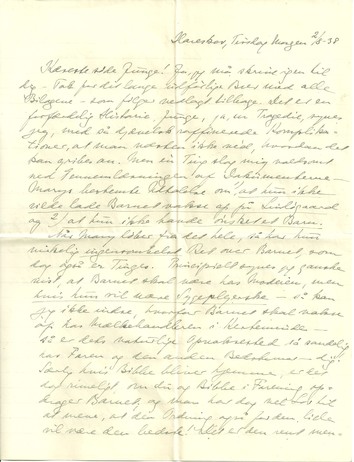 Hareskov, Tirsdag Morgen 2/8-38
Kæreste lille Junge! Ja, jeg må skrive igen til
dig - Tak for dit lange udførlige Brev med alle
Bilagene - som følger vedlagt tilbage. Det er en
forfærdelig Historie, Junge, ja, en Tragedie, synes
jeg, med så djævelsk raffinerede Komplika-
tioner, at man næsten ikke ved, hvordan det
kan gribes an. Men een Ting slog mig voldsomt
ved Gennemlæsningen af Dokumenterne -
Marys bestemte Udtalelse om at hun ikke
vilde lade Barnet vokse op på Lindsgaard
og 2/ at hun ikke havde ønsket et Barn.
Når Mary løber fra det hele, så har hun
virkelig ingensomhelst Ret over Barnet, som
dog også er Tinges. Principielt synes jeg ganske
vist, at Barnet skal være hos Moderen, men
hvis hun vil være Sygeplejerske - så kan
jeg ikke indse, hvorfor Barnet skal vokse
op hos Mælkehandleren i Kerteminde -
så er dets naturlige Opvækststed så sandelig
hos Faren og den anden Bedstemor - dig!
Særlig hvis Bibbe bliver hjemme, er det
dog rimeligt om du og Bibbe i Forening op-
drager Barnet, og man har dog vel Lov til
at mene, at den Ordning også for den lille
vil være den bedste! Det er den rent men-